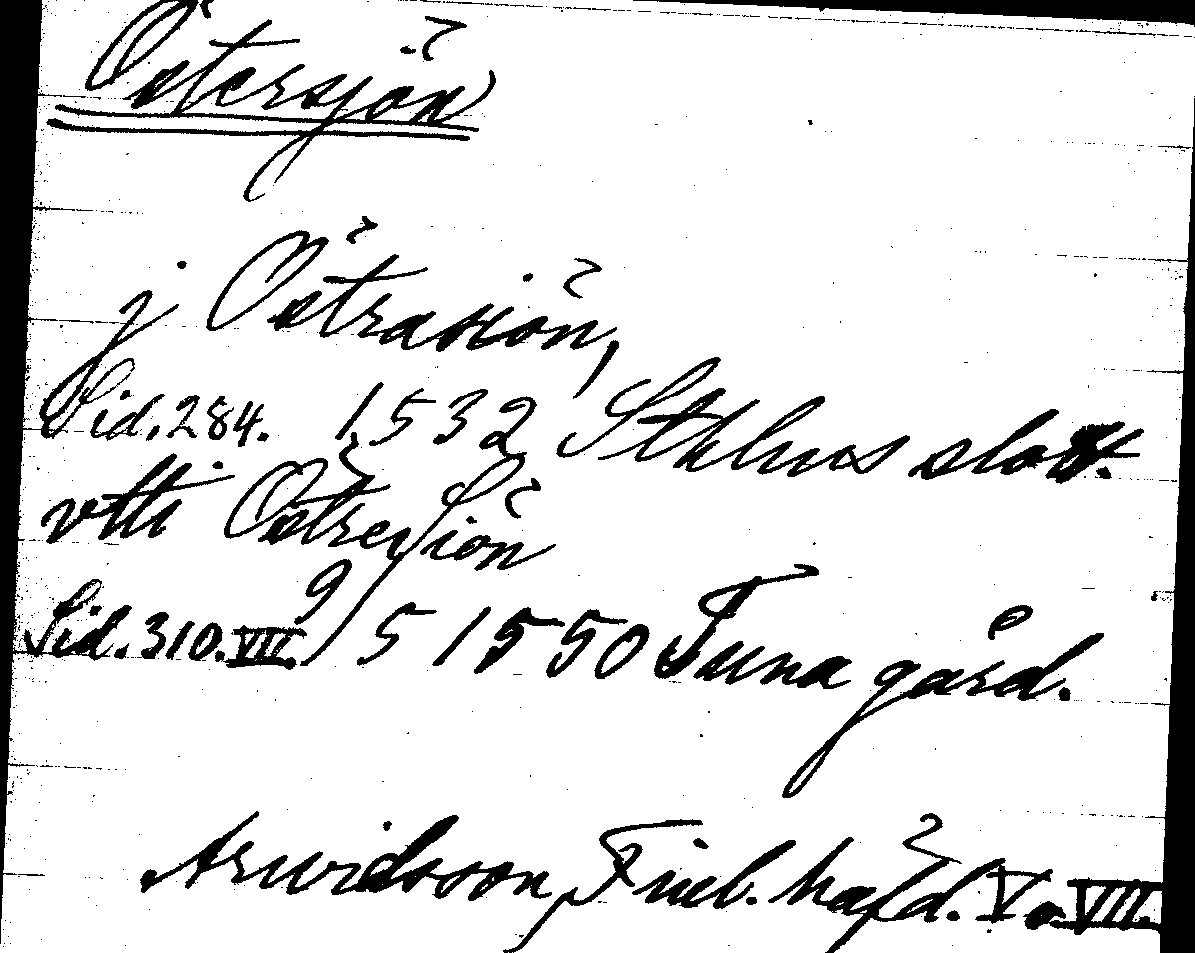 Östersjön
j Östrasiön,
Sid. 284. 1532 Sthlms slott.
vtti Östresiön
Sid. 310. VII. 9/5 1550 Tuna gård.
Arwidsson, Finl. häfd. V o. VII.